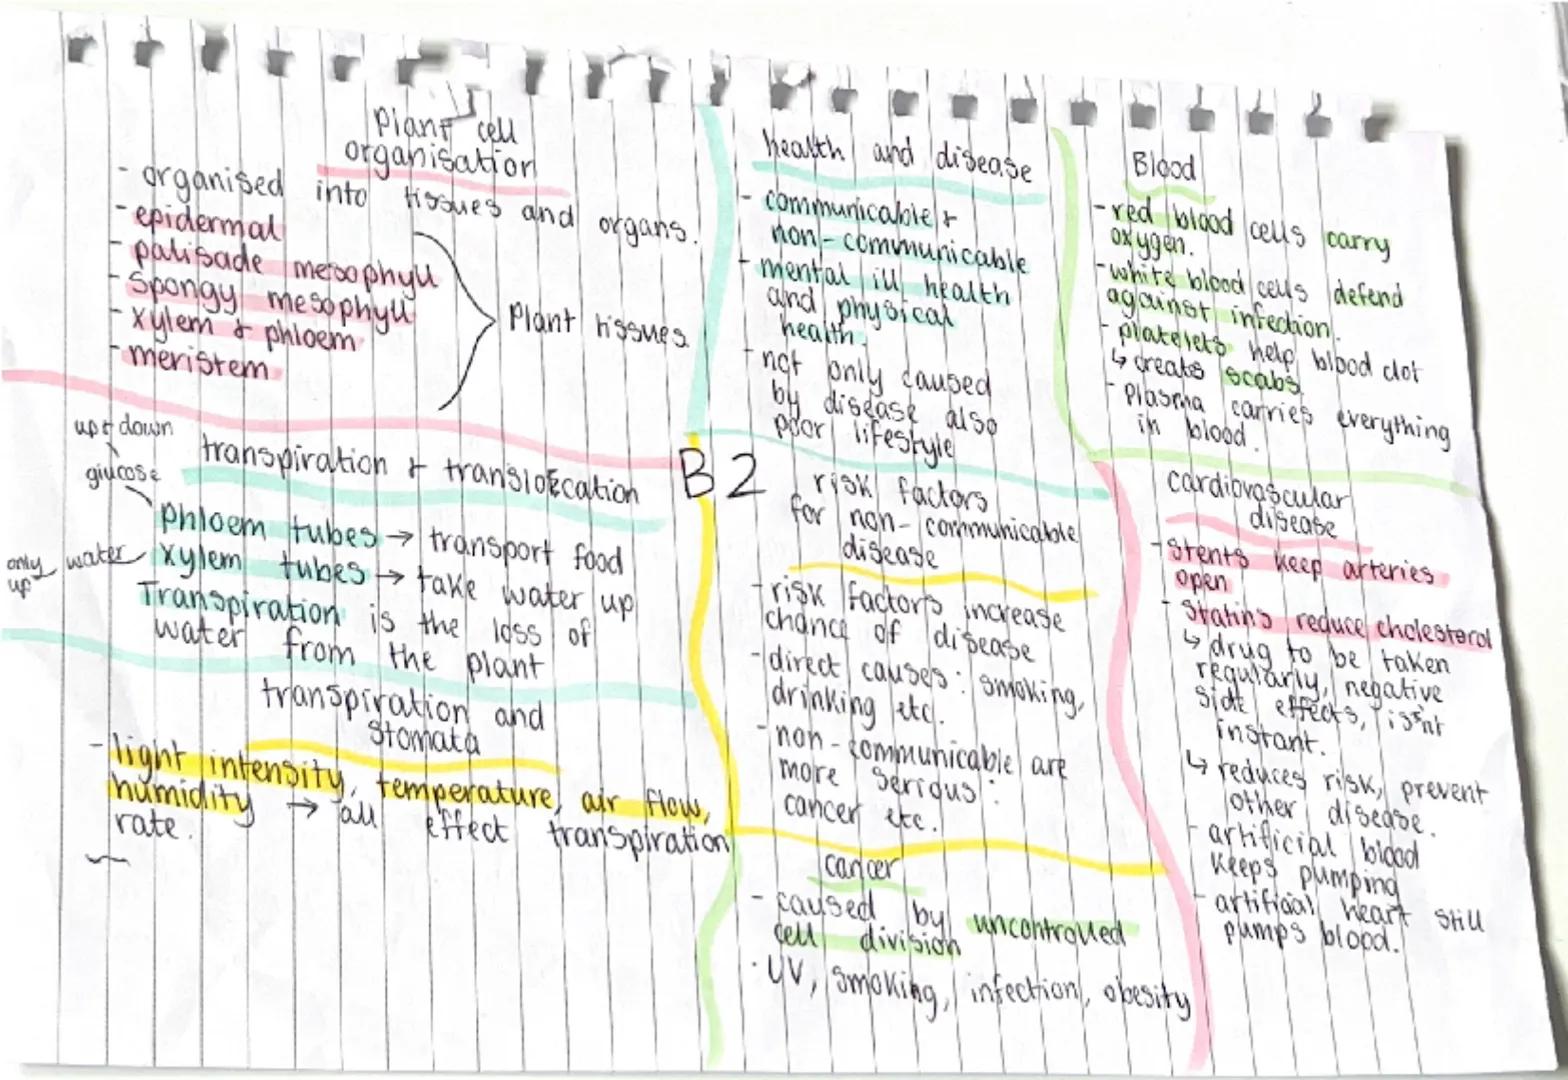 Plant cell
organisation
- organised into tissues and organs.
- epidermal
- palisade mesophyll
- Spongy mesophyll
- xylem & phloem
- meristem
Plant tissues
up & down
glucose
transpiration & translocation
phloem tubes → transport food
only up
water
xylem tubes → take water up
Transpiration is the loss of
water from the plant
transpiration and
stomata
- light intensity, temperature, air flow,
humidity → all effect transpiration
rate.
B2
health and disease
- communicable &
non-communicable
- mental ill health
and physical
health.
- not only caused
by disease also
poor lifestyle
risk factors
for non-communicable
disease
- risk factors increase
chance of disease
- direct causes: smoking,
drinking etc.
- non-communicable are
more serious:
cancer etc.
cancer
- caused by uncontrolled
cell division
· UV, smoking, infection, obesity
Blood
- red blood cells carry
oxygen.
- white blood cells defend
against infection.
- platelets help blood clot
↳ creats scabs.
- Plasma carries everything
in blood.
cardiovascular
disease
- stents keep arteries
open
- statins reduce cholesterol
↳ drug to be taken
regularly, negative
side effects, isn't
instant.
↳ reduces risk, prevent
other disease.
- artificial blood
keeps pumping
- artificial heart still
pumps blood.